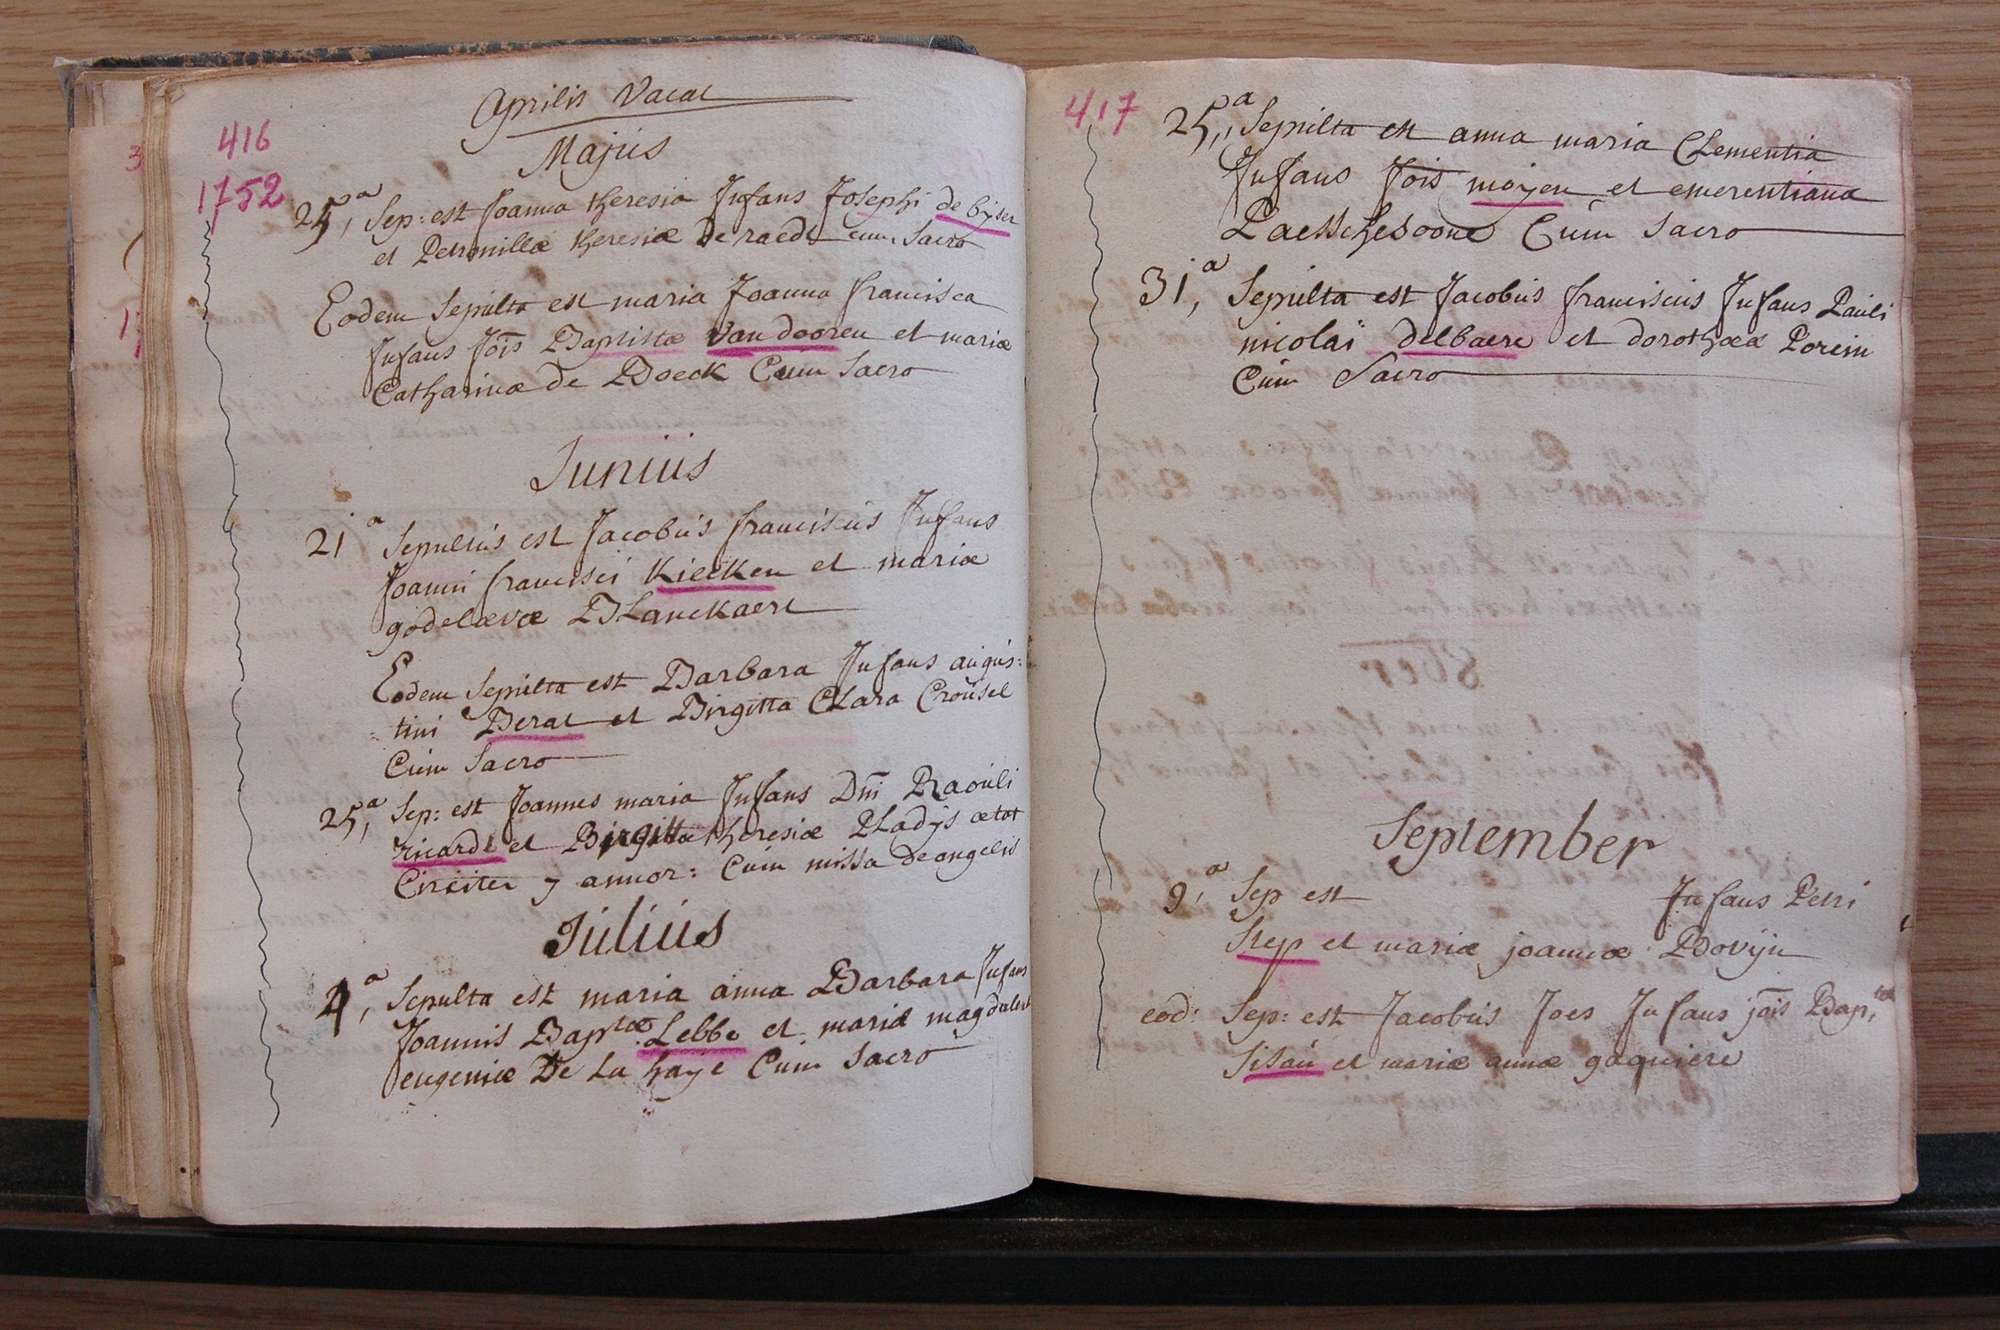 Aprilis Vacat
416
Majus
1752
25,ª Sep: est Joanna theresia Infans Josephi de byser
et Petronillæ theresiæ De raedt cum Sacro
Eodem Sepulta est maria Joanna francisca
Infans Jois Baptistæ Van dooren et mariæ
Catharinæ de Boeck Cum Sacro
Junius
21ª Sepultus est Jacobus franciscus Infans
Joanni francisci Kiecken et mariæ
godelævæ BLanckaert
Eodem Sepulta est Barbara Infans augus:
tini Berat et Birgitta CLara Crousel
Cum Sacro
25,ª Sep: est Joannes maria Infans Dni Raouli
ricard et Birgitta theresiæ PLadys ætat
Circiter 7 annor: Cum missa de angelis
Julius
4,ª Sepulta est maria anna Barbara Infans
Joannis Baptæ Lebbe et mariæ magdalenæ
eugeniæ De La haye Cum Sacro
417
25,,ª Sepulta est anna maria CLementia
Infans Jois moyen et emerentiana
Paesschesoone Cum Sacro
31,ª Sepulta est Jacobus franciscus Infans Pauli
nicolai delbaere et dorotheæ Porein
Cum Sacro
September
9,ª Sep est Infans Petri
Step et mariæ joannæ Bovijn
eod: Sep: est Jacobus Joes Infans jois Bap,tæ
Sisau et mariæ annæ gaquiere